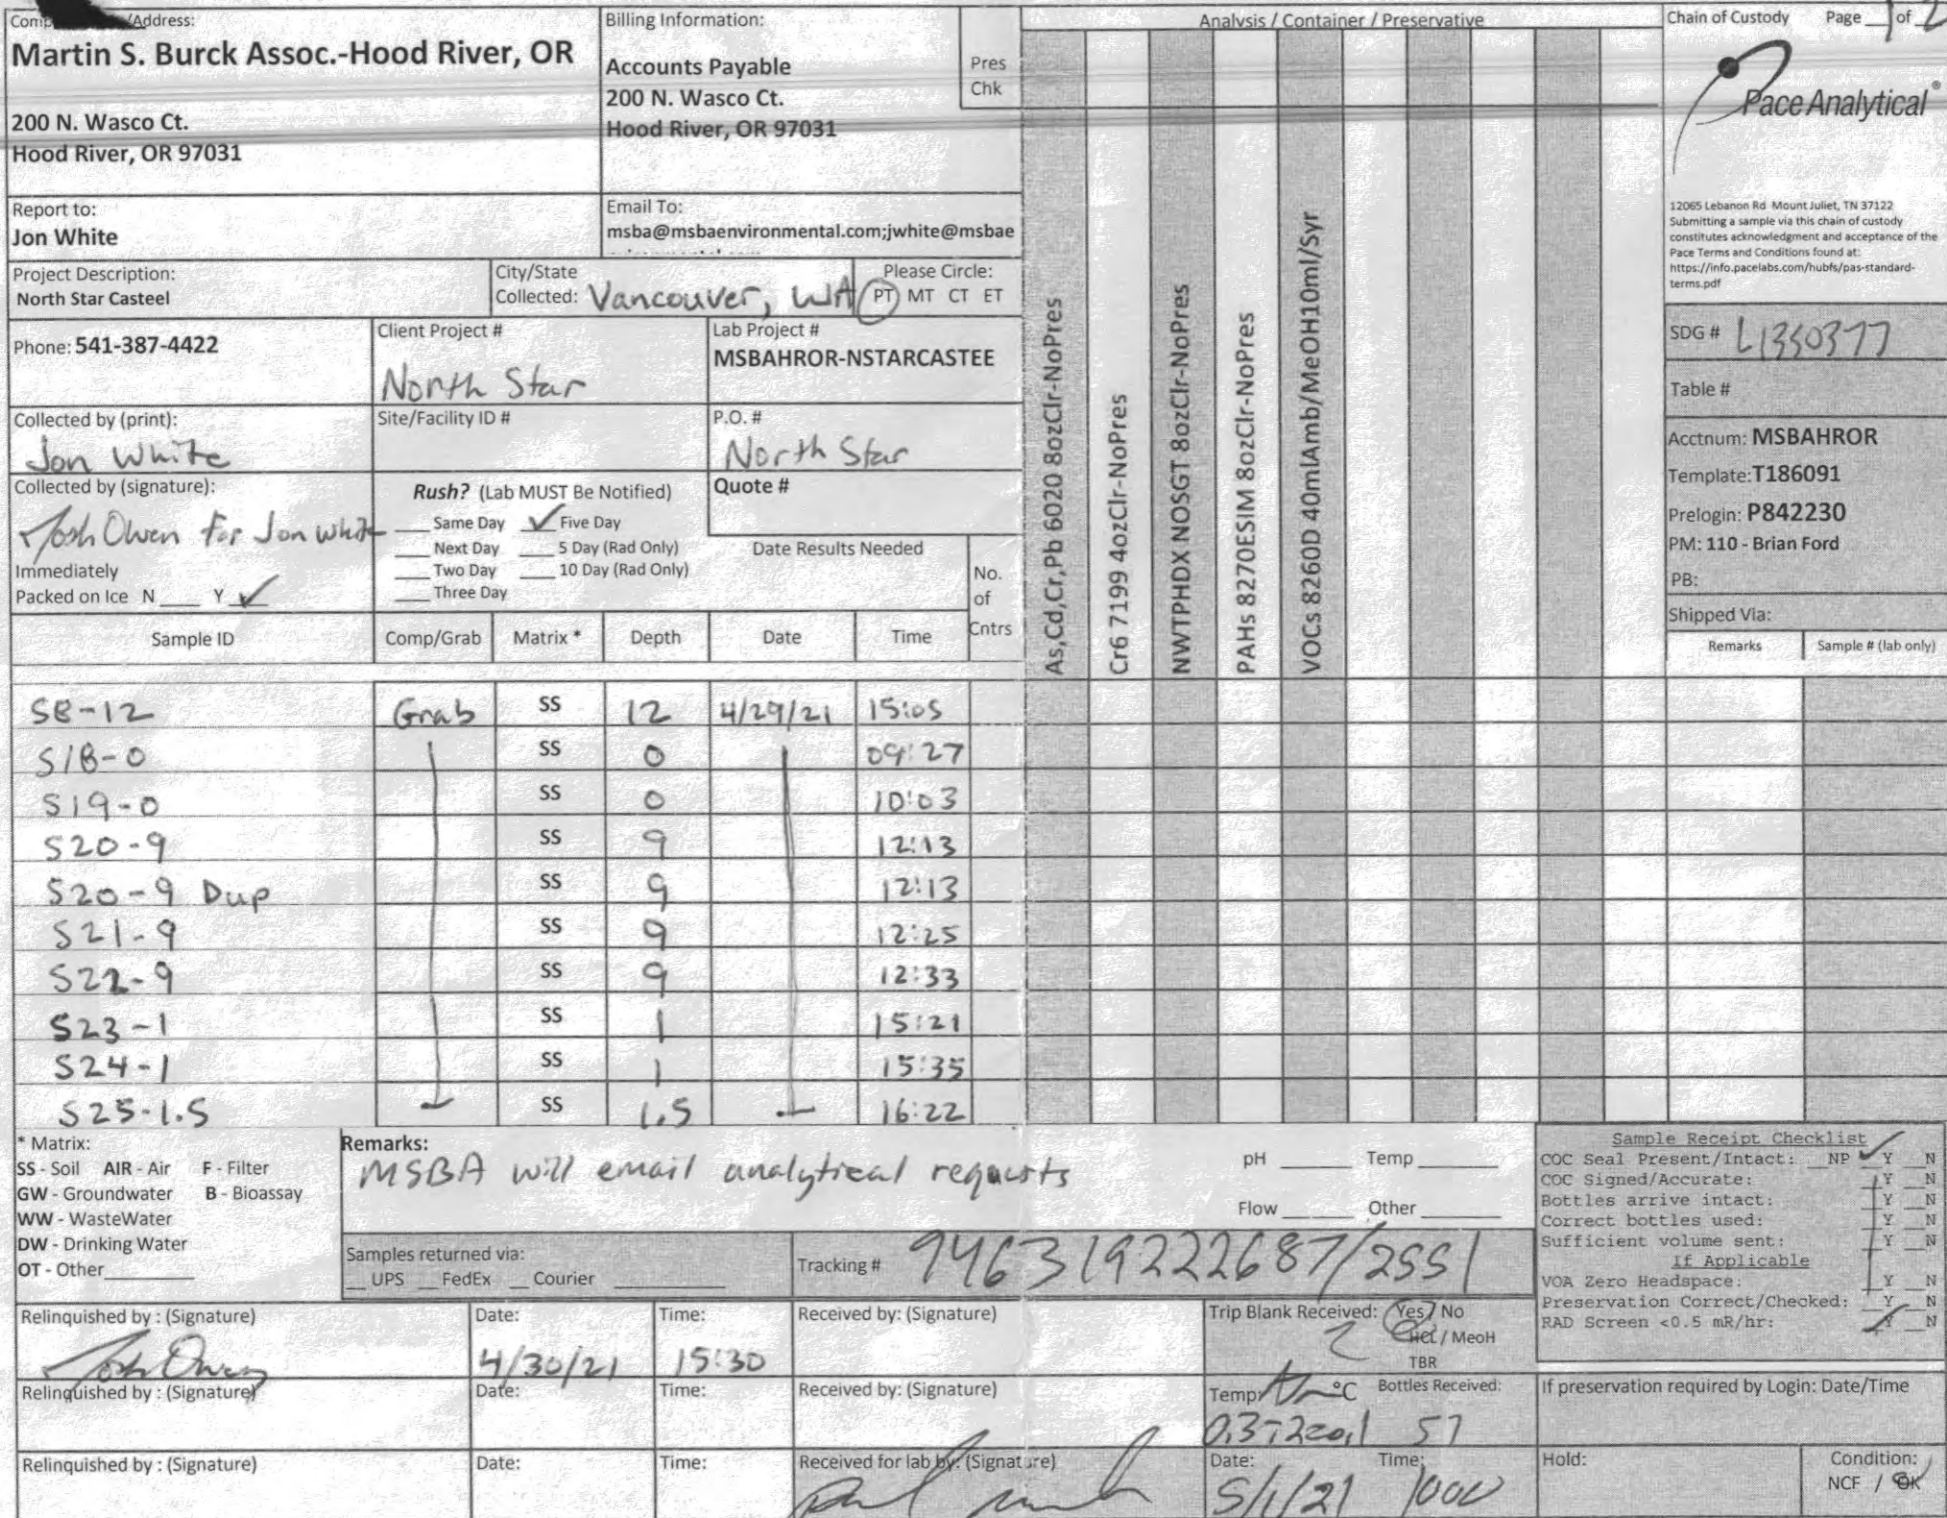 /Address:
Martin S. Burck Assoc.-Hood River, OR
200 N. Wasco Ct.
Hood River, OR 97031
Billing Information:
Accounts Payable
200 N. Wasco Ct.
Hood River, OR 97031
Pres
Chk
Analysis / Container / Preservative
Chain of Custody Page 1 of 2
Pace Analytical®
12065 Lebanon Rd Mount Juliet, TN 37122
Submitting a sample via this chain of custody
constitutes acknowledgment and acceptance of the
Pace Terms and Conditions found at:
https://info.pacelabs.com/hubfs/pas-standard-
terms.pdf
Report to:
Jon White
Email To:
msba@msbaenvironmental.com;jwhite@msbae
Project Description:
North Star Casteel
City/State
Collected: Vancouver, WA
Please Circle:
PT MT CT ET
Phone: 541-387-4422
Client Project #
North Star
Lab Project #
MSBAHROR-NSTARCASTEE
Collected by (print):
Jon White
Site/Facility ID #
P.O. #
North Star
Collected by (signature):
Josh Owen For Jon White
Immediately
Packed on Ice N ___ Y ✓
Rush? (Lab MUST Be Notified)
___ Same Day ✓ Five Day
___ Next Day ___ 5 Day (Rad Only)
___ Two Day ___ 10 Day (Rad Only)
___ Three Day
Quote #
Date Results Needed
No.
of
Cntrs
As,Cd,Cr,Pb 6020 8ozClr-NoPres
Cr6 7199 4ozClr-NoPres
NWTPHDX NOSGT 8ozClr-NoPres
PAHs 8270ESIM 8ozClr-NoPres
VOCs 8260D 40mlAmb/MeOH10ml/Syr
SDG # L1350377
Table #
Acctnum: MSBAHROR
Template: T186091
Prelogin: P842230
PM: 110 - Brian Ford
PB:
Shipped Via:
Remarks Sample # (lab only)
Sample ID Comp/Grab Matrix * Depth Date Time
S8-12 Grab SS 12 4/29/21 15:05
S18-0 SS 0 09:27
S19-0 SS 0 10:03
S20-9 SS 9 12:13
S20-9 Dup SS 9 12:13
S21-9 SS 9 12:25
S22-9 SS 9 12:33
S23-1 SS 1 15:21
S24-1 SS 1 15:35
S25-1.5 SS 1.5 16:22
* Matrix:
SS - Soil AIR - Air F - Filter
GW - Groundwater B - Bioassay
WW - WasteWater
DW - Drinking Water
OT - Other
Remarks:
MSBA will email analytical requests
pH ___ Temp ___
Flow ___ Other ___
Samples returned via:
__ UPS __ FedEx __ Courier
Tracking # 946319222687/2551
Sample Receipt Checklist
COC Seal Present/Intact: __ NP ✓ Y __ N
COC Signed/Accurate: Y __ N
Bottles arrive intact: Y __ N
Correct bottles used: Y __ N
Sufficient volume sent: Y __ N
If Applicable
VOA Zero Headspace: Y __ N
Preservation Correct/Checked: Y __ N
RAD Screen <0.5 mR/hr: Y __ N
Relinquished by : (Signature)
Josh Owen
Date:
4/30/21
Time:
15:30
Received by: (Signature)
Trip Blank Received: Yes / No
2 HCL / MeoH
TBR
Relinquished by : (Signature)
Date:
Time:
Received by: (Signature)
Temp: °C Bottles Received:
57
If preservation required by Login: Date/Time
Relinquished by : (Signature)
Date:
Time:
Received for lab by: (Signature)
Date:
5/1/21
Time:
1000
Hold:
Condition:
NCF / OK